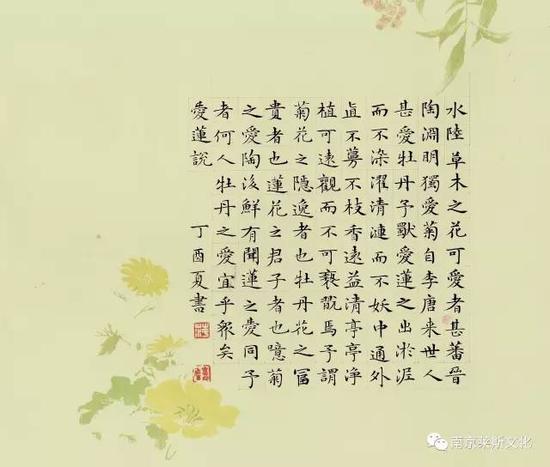 水陸草木之花可愛者甚蕃晉
陶淵明獨愛菊自李唐来世人
甚愛牡丹予獨愛蓮之出淤泥
而不染濯清漣而不妖中通外
直不蔓不枝香遠益清亭亭净
植可遠觀而不可褻翫焉予謂
菊花之隱逸者也牡丹花之冨
貴者也蓮花之君子者也噫菊
之愛陶後鮮有聞蓮之愛同予
者何人牡丹之愛宜乎衆矣
愛蓮説 丁酉夏書
南京莱斯文化